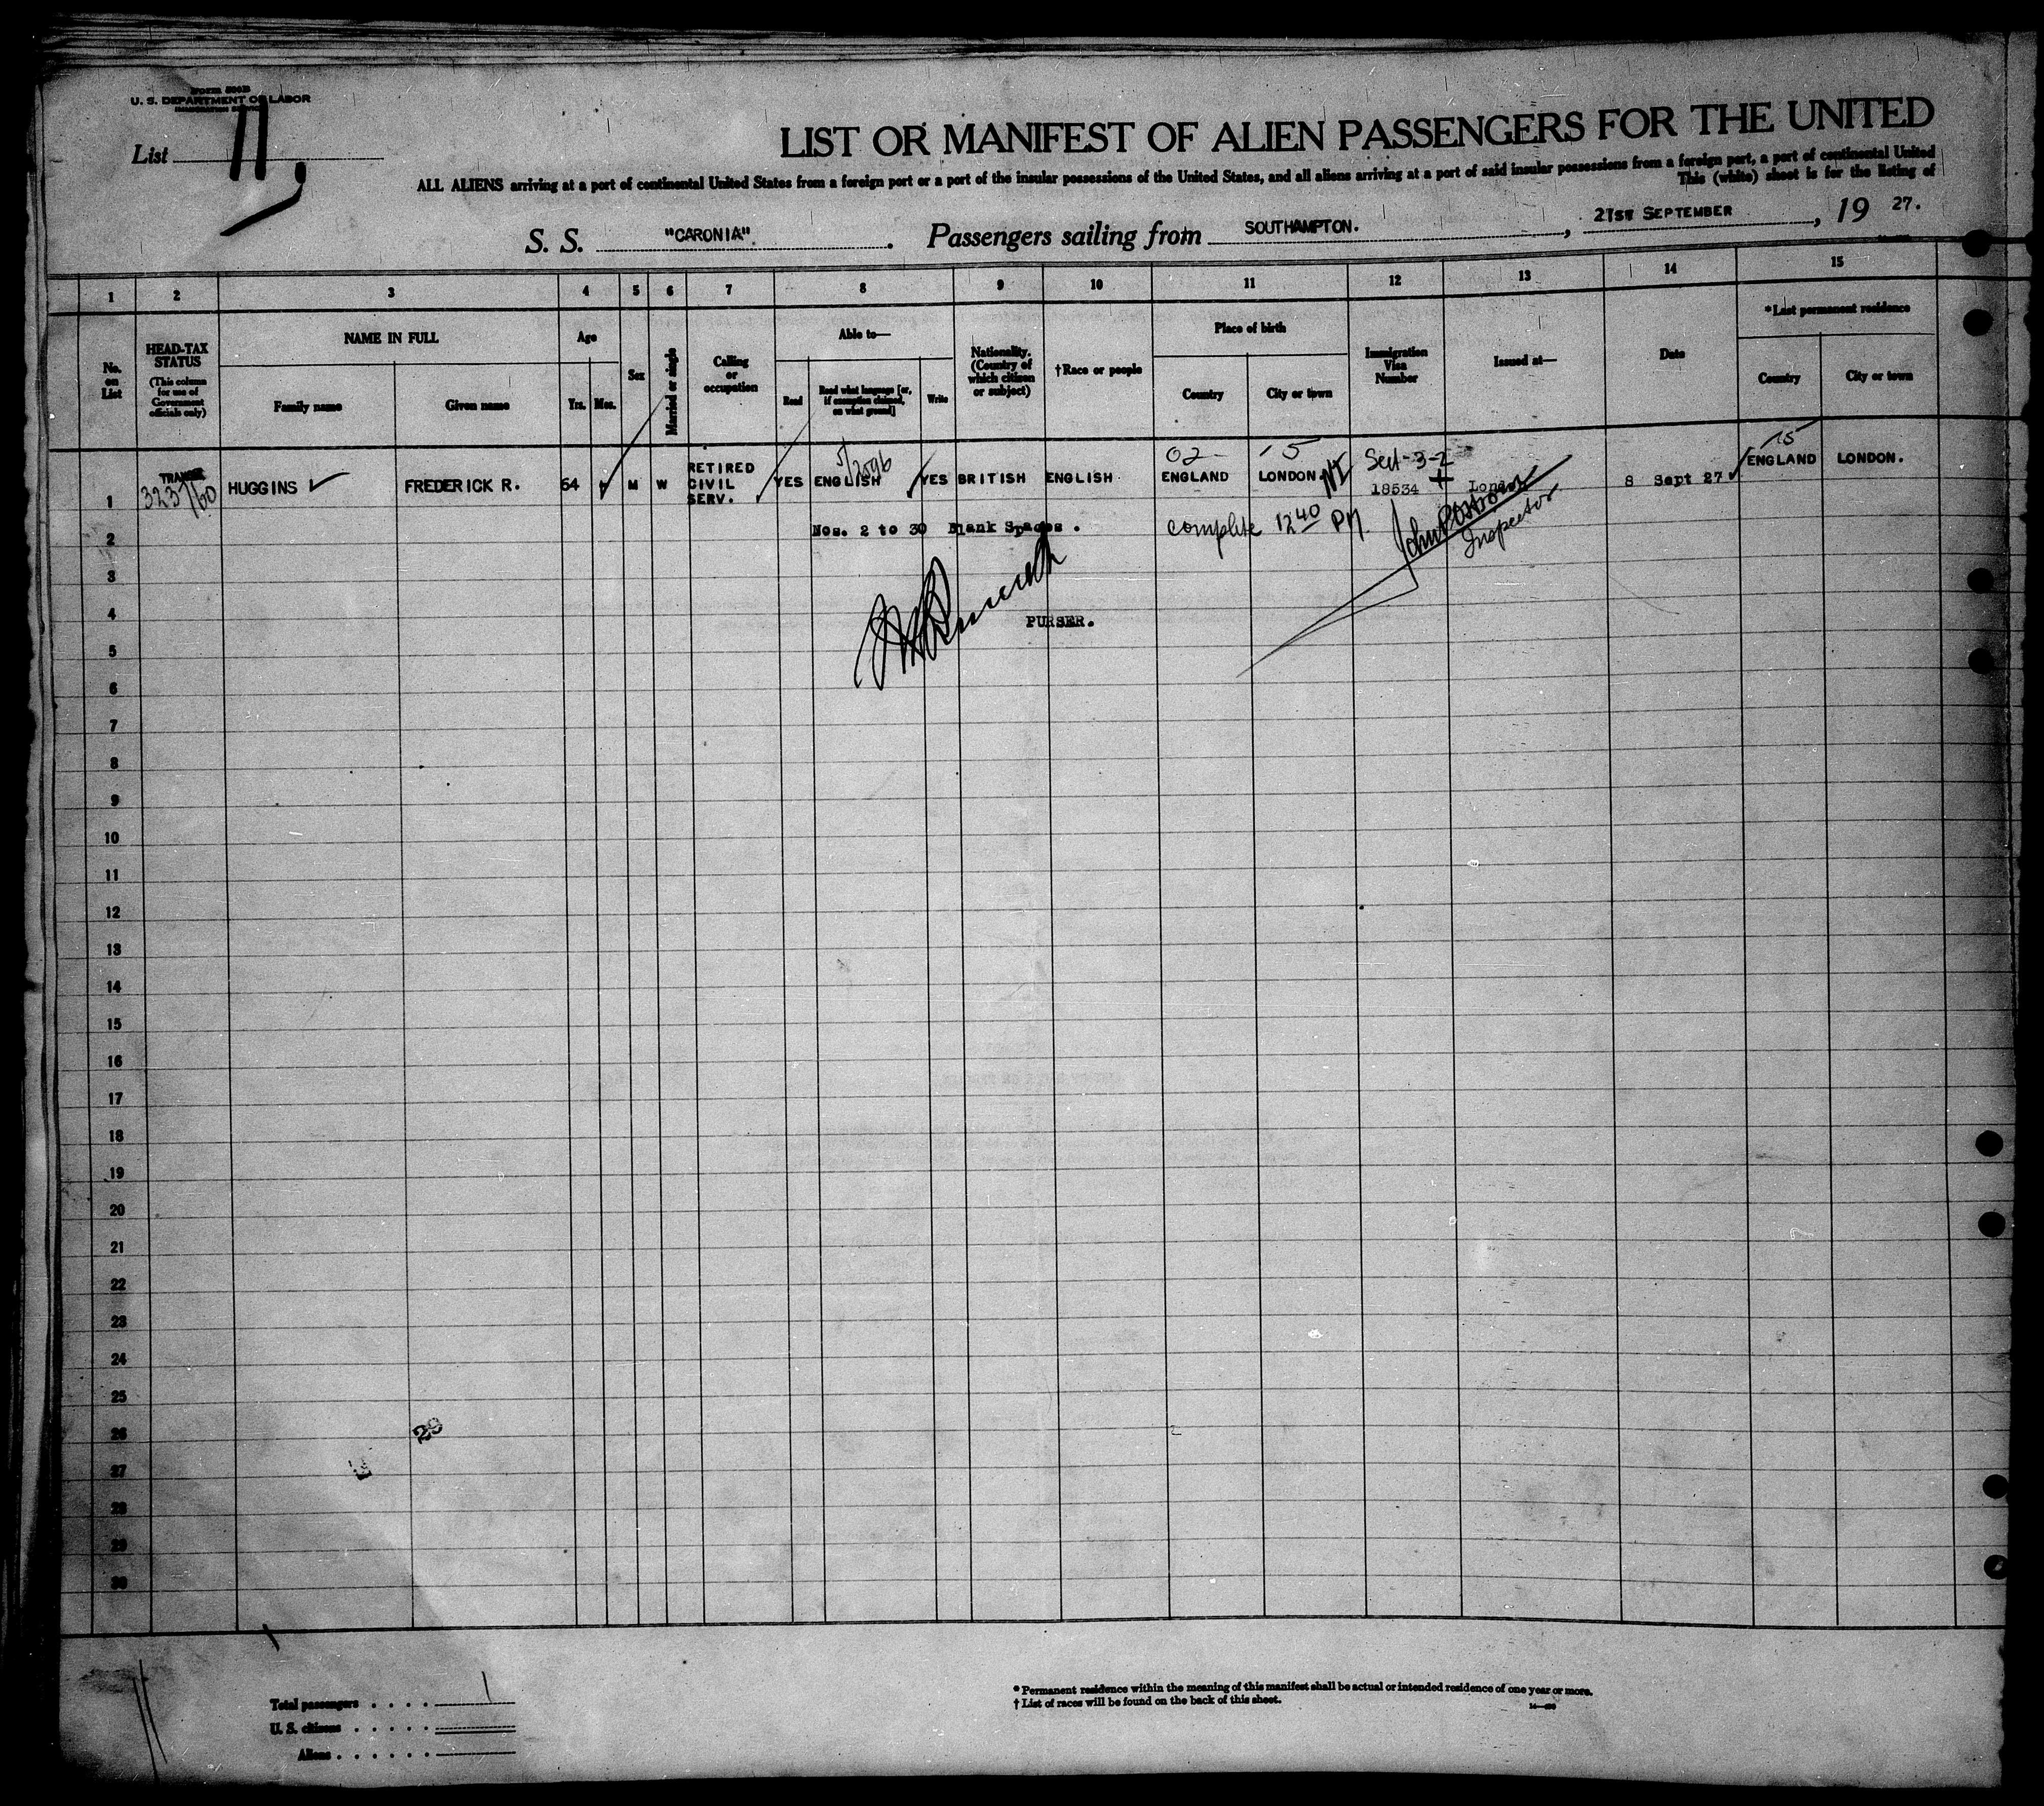 Form 500B
U. S. DEPARTMENT OF LABOR
IMMIGRATION SERVICE
List 11
LIST OR MANIFEST OF ALIEN PASSENGERS FOR THE UNITED
ALL ALIENS arriving at a port of continental United States from a foreign port or a port of the insular possessions of the United States, and all aliens arriving at a port of said insular possessions from a foreign port, a port of continental United
This (white) sheet is for the listing of
S. S. "CARONIA". Passengers sailing from SOUTHAMPTON., 21ST SEPTEMBER, 19 27.
1 2 3 4 5 6 7 8 9 10 11 12 13 14 15
No. on List
HEAD-TAX STATUS (This column for use of Government officials only)
NAME IN FULL
Family name
Given name
Age
Yrs. Mos.
Sex
Married or single
Calling or occupation
Able to—
Read
Read what language [or, if exemption claimed, on what ground]
Write
Nationality. (Country of which citizen or subject)
†Race or people
Place of birth
Country
City or town
Immigration Visa Number
Issued at—
Date
*Last permanent residence
Country
City or town
5/2096 02- 15 Sect-3-2 15
1 3237/60 HUGGINS FREDERICK R. 64 M W RETIRED CIVIL SERV. YES ENGLISH YES BRITISH ENGLISH ENGLAND LONDON. 18534 London 8 Sept 27 ENGLAND LONDON.
2 Nos. 2 to 30 Blank Spaces. Complete 12 40 PM
Inspector
3
4 PURSER.
5
6
7
8
9
10
11
12
13
14
15
16
17
18
19
20
21
22
23
24
25
26 29
27
28
29
30
Total passengers . . . . 1
U. S. citizens . . . . .
Aliens . . . . . .
* Permanent residence within the meaning of this manifest shall be actual or intended residence of one year or more.
† List of races will be found on the back of this sheet.